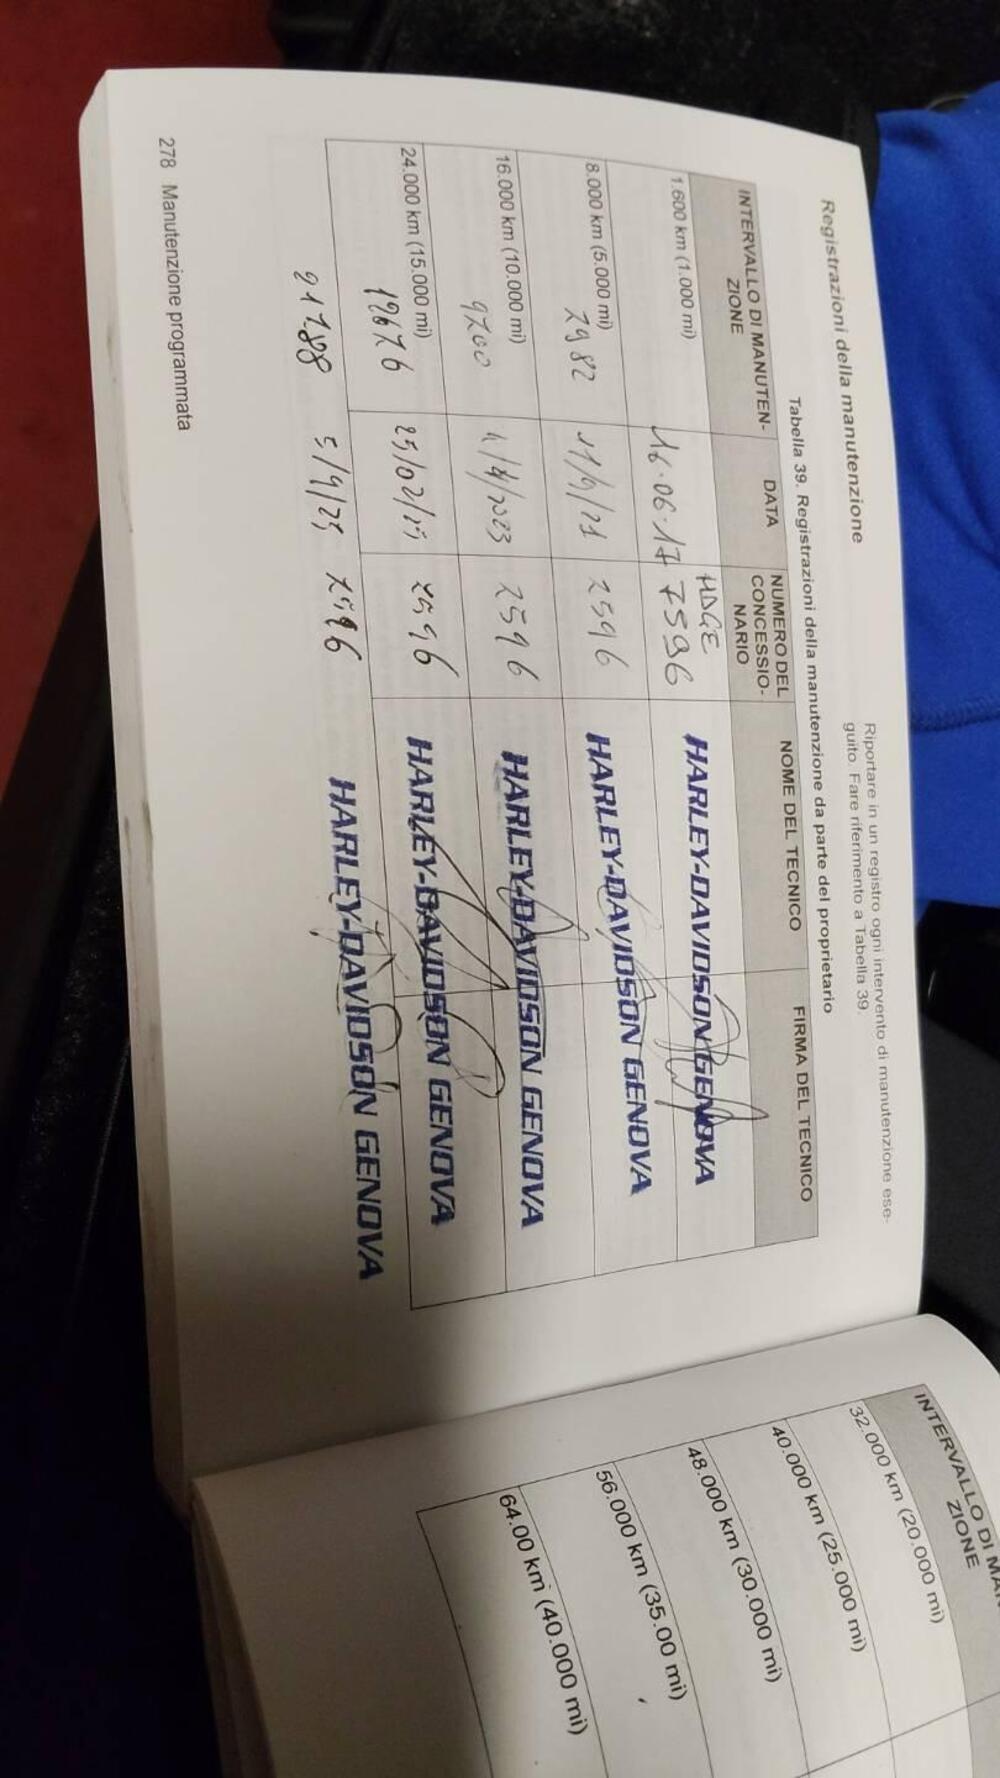 Registrazioni della manutenzione
Riportare in un registro ogni intervento di manutenzione ese-
guito. Fare riferimento a Tabella 39.
Tabella 39. Registrazioni della manutenzione da parte del proprietario
INTERVALLO DI MANUTEN-
ZIONE
DATA
NUMERO DEL
CONCESSIO-
NARIO
NOME DEL TECNICO
FIRMA DEL TECNICO
1.600 km (1.000 mi)
16.06.17
HDGE
7596
HARLEY-DAVIDSON GENOVA
8.000 km (5.000 mi)
7982
11/9/21
2596
HARLEY-DAVIDSON GENOVA
16.000 km (10.000 mi)
9700
2596
HARLEY-DAVIDSON GENOVA
24.000 km (15.000 mi)
2596
HARLEY-DAVIDSON GENOVA
HARLEY-DAVIDSON GENOVA
278 Manutenzione programmata
INTERVALLO DI MAN
ZIONE
32.000 km (20.000 mi)
40.000 km (25.000 mi)
48.000 km (30.000 mi)
56.000 km (35.00 mi)
64.00 km (40.000 mi)